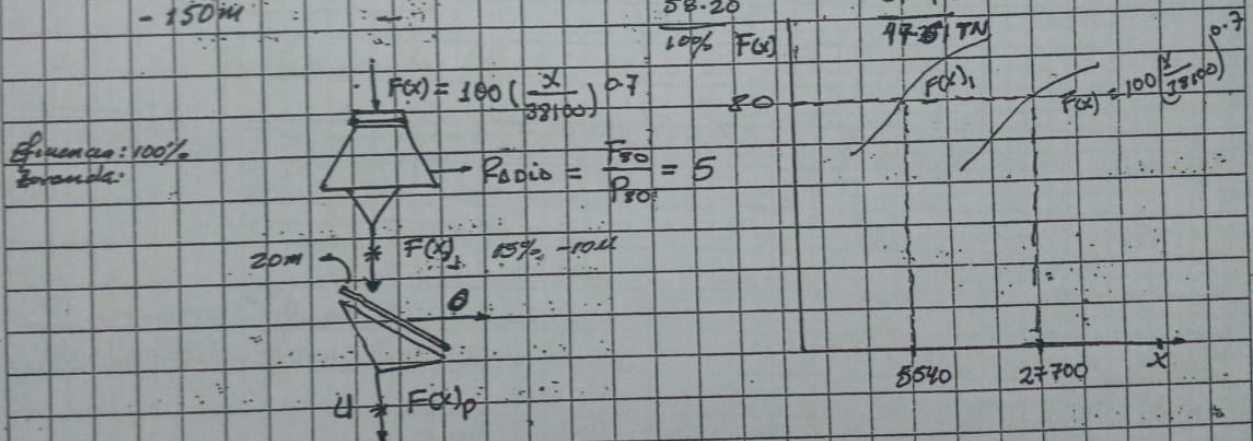 - 150m
58.20
100%
97.351 TN
F(x) = 100 (x/38100)^0.7
F(x)
80
F(x)1
F(x) = 100 (x/38100)^0.7
Eficiencia: 100%
Zaranda:
RADIO = F80/P80 = 5
20m
F(x)1 15% -10M
θ
5540
27700
x
U
F(x)p